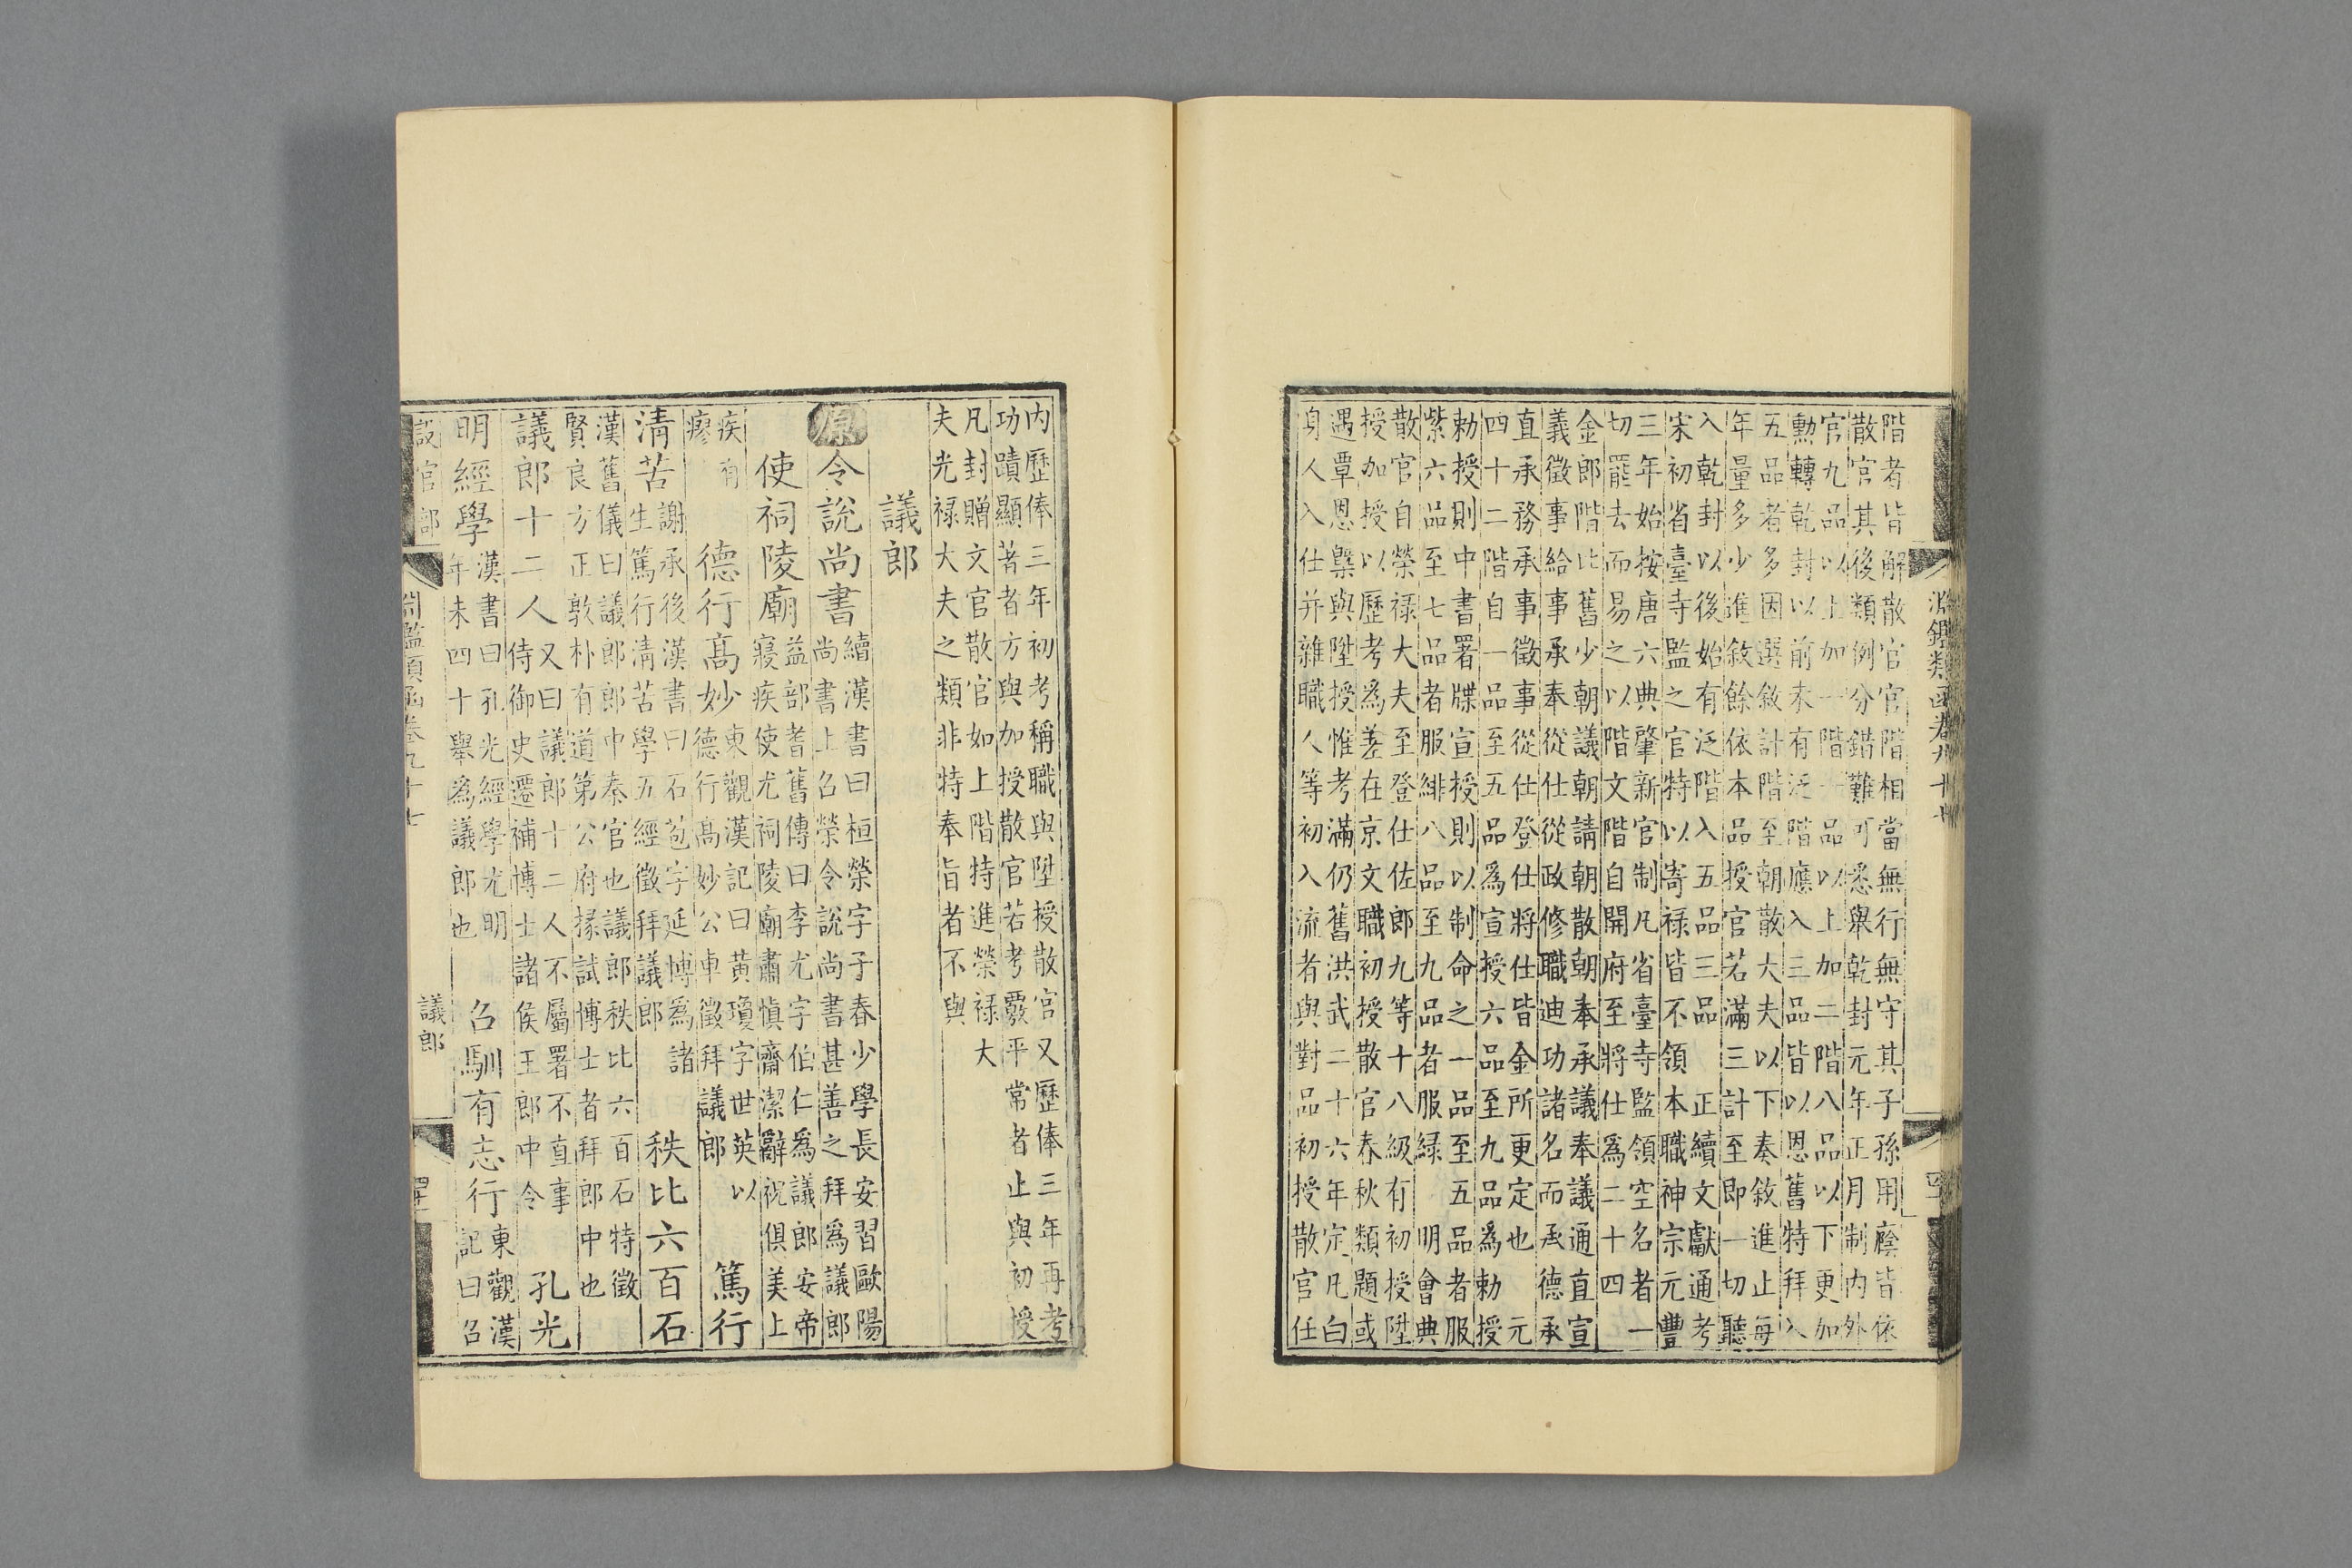 淵鑑類函卷九十七
階者皆解散官官階相當無行無守其子孫用廕皆依
散官其後類例分錯難可悉舉乾封元年正月制內外
官九品以上加一階一品以上加二階八品以下更加
勳轉乾封以前未有泛階應入三品皆以恩舊特拜入
五品者多因選敘計階至朝散大夫以下奏敘進止每
年量多少進敘餘依本品授官若滿三計至即一切聽
入乾封以後始有泛階入五品三品 正續文獻通考
宋初省臺寺監之官特以寄祿皆不領本職神宗元豐
三年始按唐六典肇新官制凡省臺寺監領空名者一
切罷去而易之以階文階自開府至將仕爲二十四
金郎階比舊少朝議朝請朝散朝奉承議奉議通直宣
義徵事給事承奉從仕從政修職迪功諸名而承德承
直承務承事徵事從仕登仕將仕皆金所更定也 元
四十二階自一品至五品爲宣授六品至九品爲勅授
勅授則中書署牒宣授則以制命之一品至五品者服
紫六品至七品者服緋八品至九品者服緑 明會典
散官自榮祿大夫至登仕佐郎九等十八級有初授陞
授加授以歷考爲差在京文職初授散官春秋類題或
遇覃恩槩與陞授惟考滿仍舊洪武二十六年定凡白
身人入仕并雜職人等初入流者與對品初授散官任
內歷俸三年初考稱職與陞授散官又歷俸三年再考
功蹟顯著者方與加授散官若考覈平常者止與初授
凡封贈文官散官如上階特進榮祿大
夫光祿大夫之類非特奉旨者不與
議郎
原令說尚書 續漢書曰桓榮字子春少學長安習歐陽
尚書上召榮令說尚書甚善之拜爲議郎
使祠陵廟 益部耆舊傳曰李尤字伯仁爲議郎安帝
寢疾使尤祠陵廟肅慎齋潔辭祝俱美上
疾有
瘳
德行高妙 東觀漢記曰黃瓊字世英以
德行高妙公車徵拜議郎
篤行
清苦 謝承後漢書曰石苞字延愽爲諸
生篤行清苦學五經徵拜議郎
秩比六百石
漢舊儀曰議郎郎中秦官也議郎秩比六百石特徵
賢良方正敦朴有道第公府掾試博士者拜郎中也
議郎十二人 又曰議郎十二人不屬署不直事
侍御史遷補博士諸侯王郎中令
孔光
明經學 漢書曰孔光經學尤明
年未四十舉爲議郎也
召馴有志行 東觀漢
記曰召
設官部
淵鑑類函卷九十七
議郎